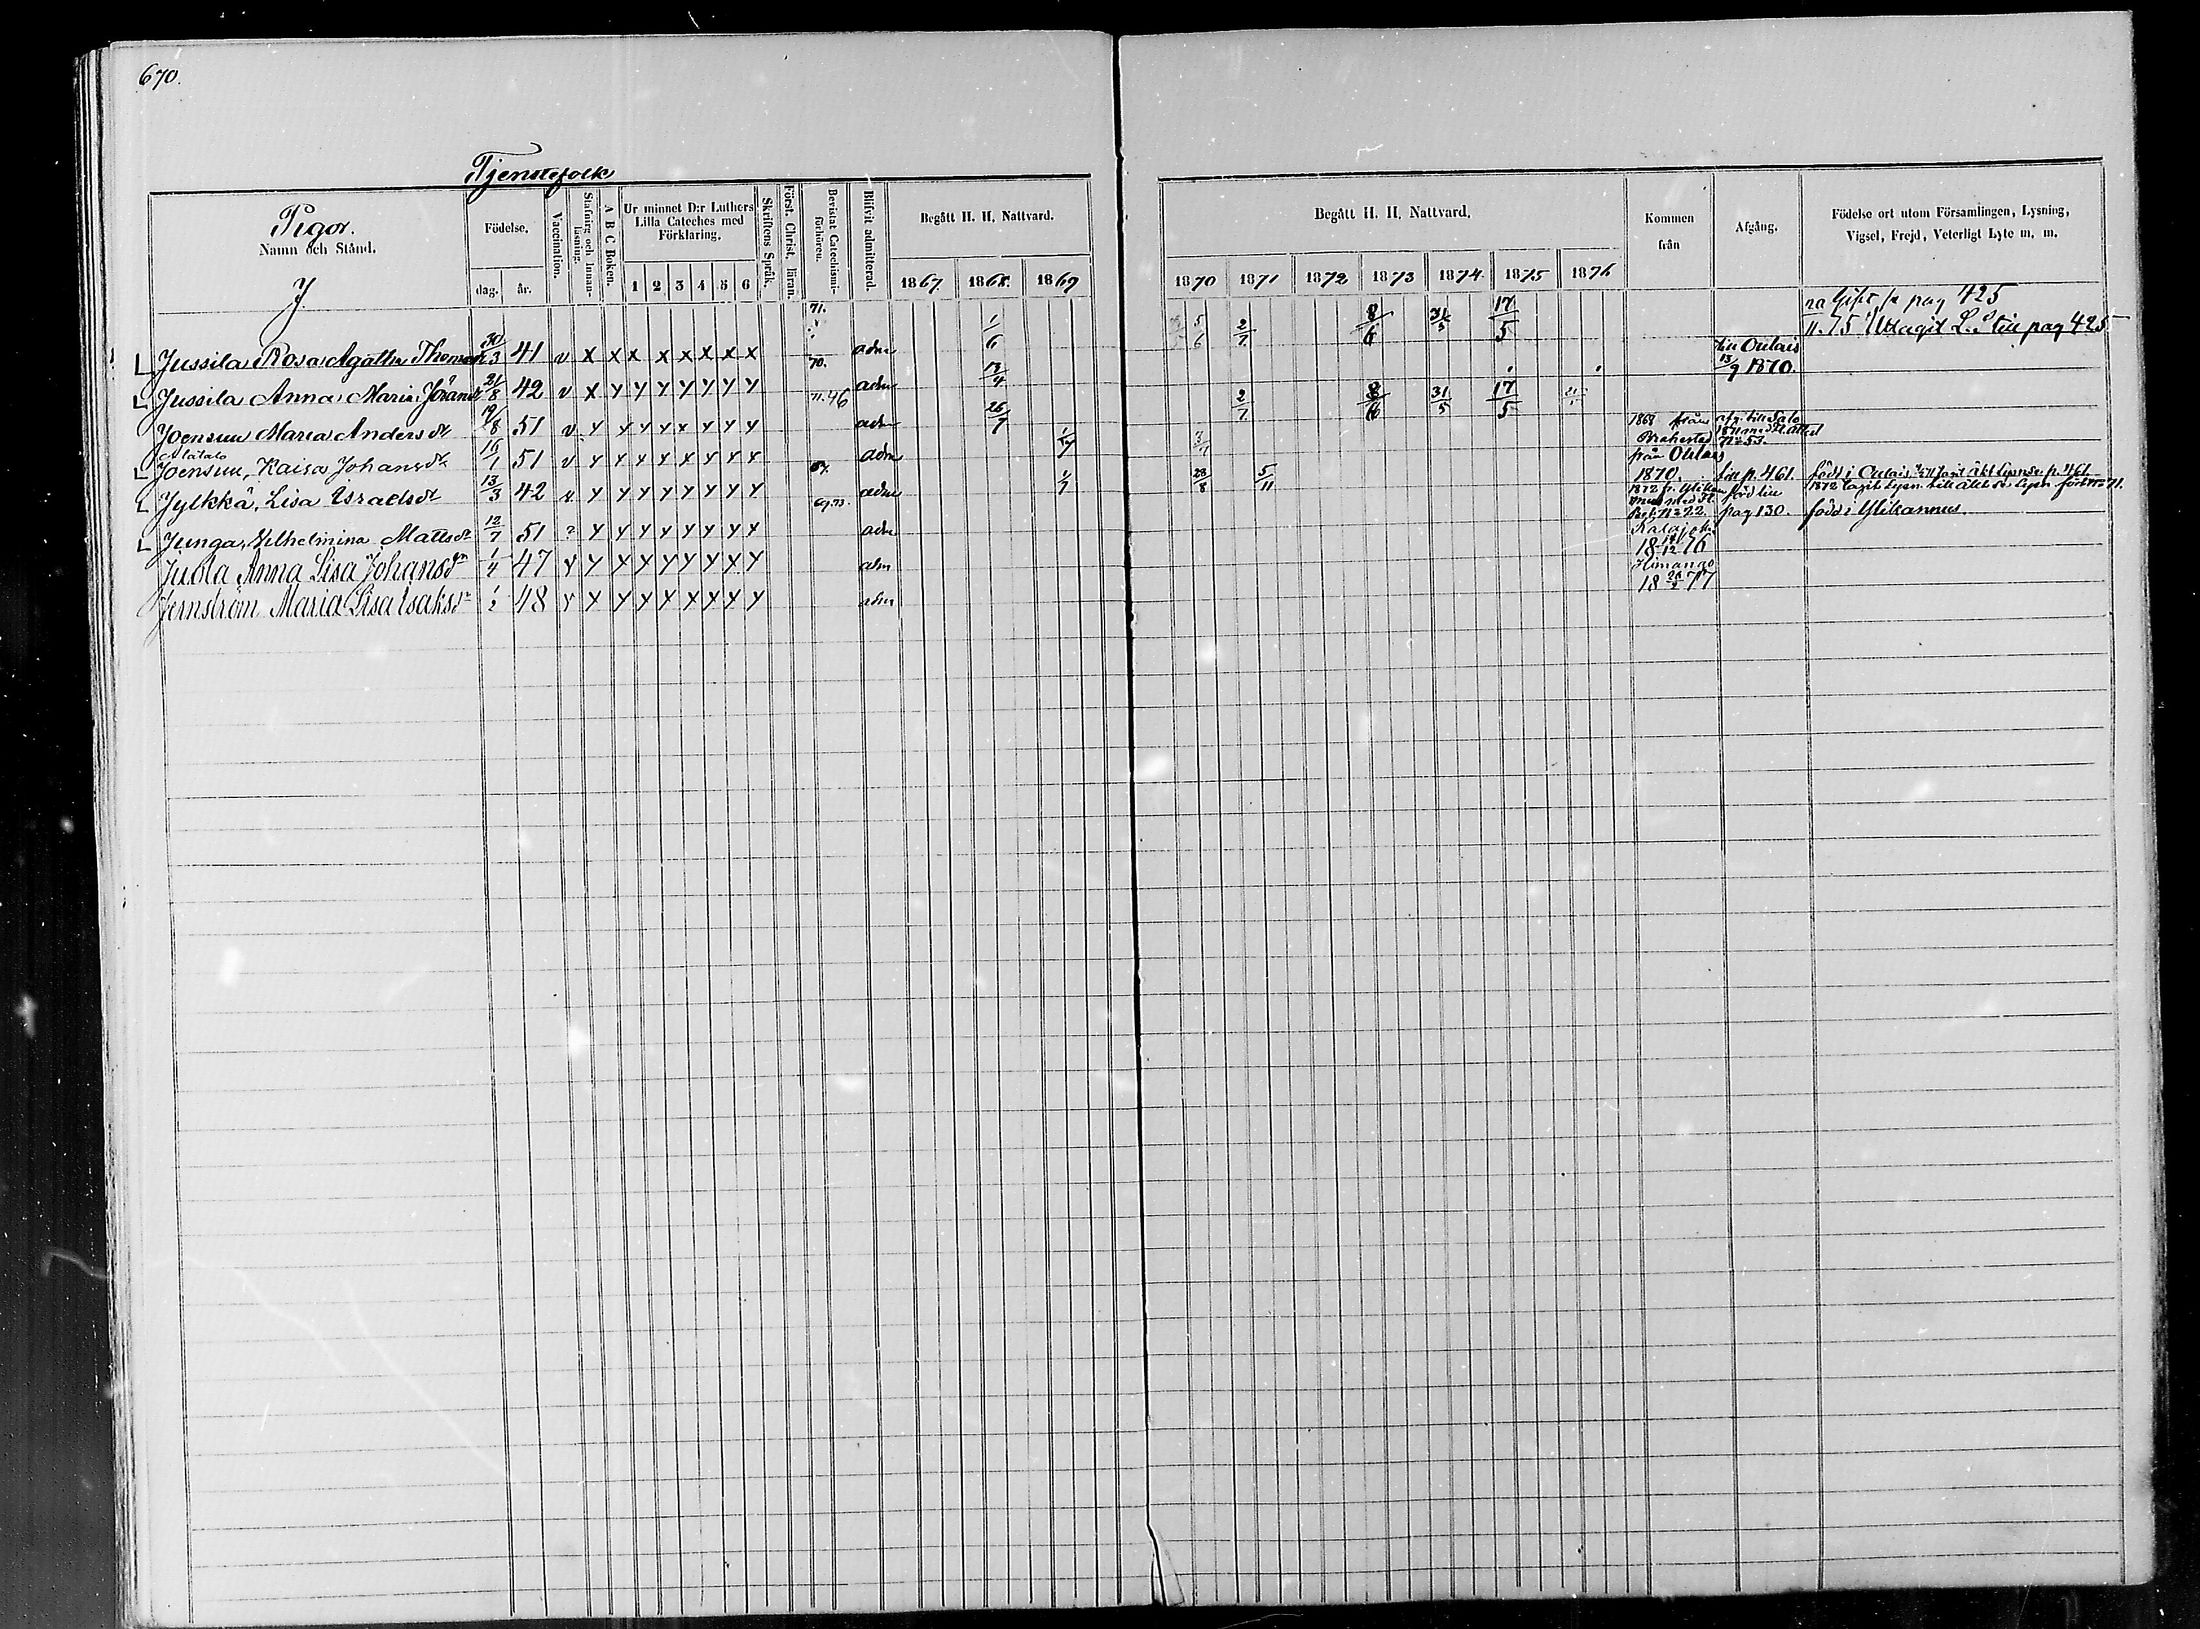 670.
Tjenstefolk
Pigor.
Namn och Stånd.
J
Födelse.
dag. år.
Vaccination.
Stafning och Innanläsning.
A B C Boken.
Ur minnet D:r Luthers Lilla Cateches med Förklaring.
1 2 3 4 5 6
Skriftens Språk.
Först. Christ. läran.
Bevistat Catechismiförhören.
Blifvit admitterad.
Begått H. H. Nattvard.
1867. 1868. 1869
Begått H. H. Nattvard.
1870 1871 1872 1873 1874 1875 1876
Kommen från
Afgång.
Födelse ort utom Församlingen, Lysning, Vigsel, Frejd, Veterligt Lyte m. m.
Jussila Rosa Agatha 30/3 41 v x x x x x x x x 71. adm 1/6 5/6 2/7 8/6 31/5 17/5 pag 425
11.75 Uttagit L. S. till pag 425
Jussila Anna Maria 21/8 42 v x y y y y y y y 70. adm 13/4 till Oulais 13/9 1870.
Joensuu Maria Anders dr 19/8 51 v y y y y x y y y 71. 46 adm 26/7 2/7 8/6 31/5 17/5 1868 från Brahestad
Joensuu, Kaisa Johans dr 16/1 51 v y y y y x y y y adm 3/7 från Oulais 1870.
Jylkkä, Lisa Israels dr 13/3 42 v y y y y y y y y 67. adm 1/7 28/8 5/11 till p. 461. född i Oulais
Junga, Wilhelmina Matts dr 12/7 51 ? y y y y y y y y 69.73. adm pag 130. född i Ylikannus
Juola Anna Lisa Johans dr 1/4 47 v y x y y y y x y adm Kalajoki 18 /12 76
Jernström Maria Lisa Isaks dr 1/2 48 v x y y y x y y y adm Himango 18 77